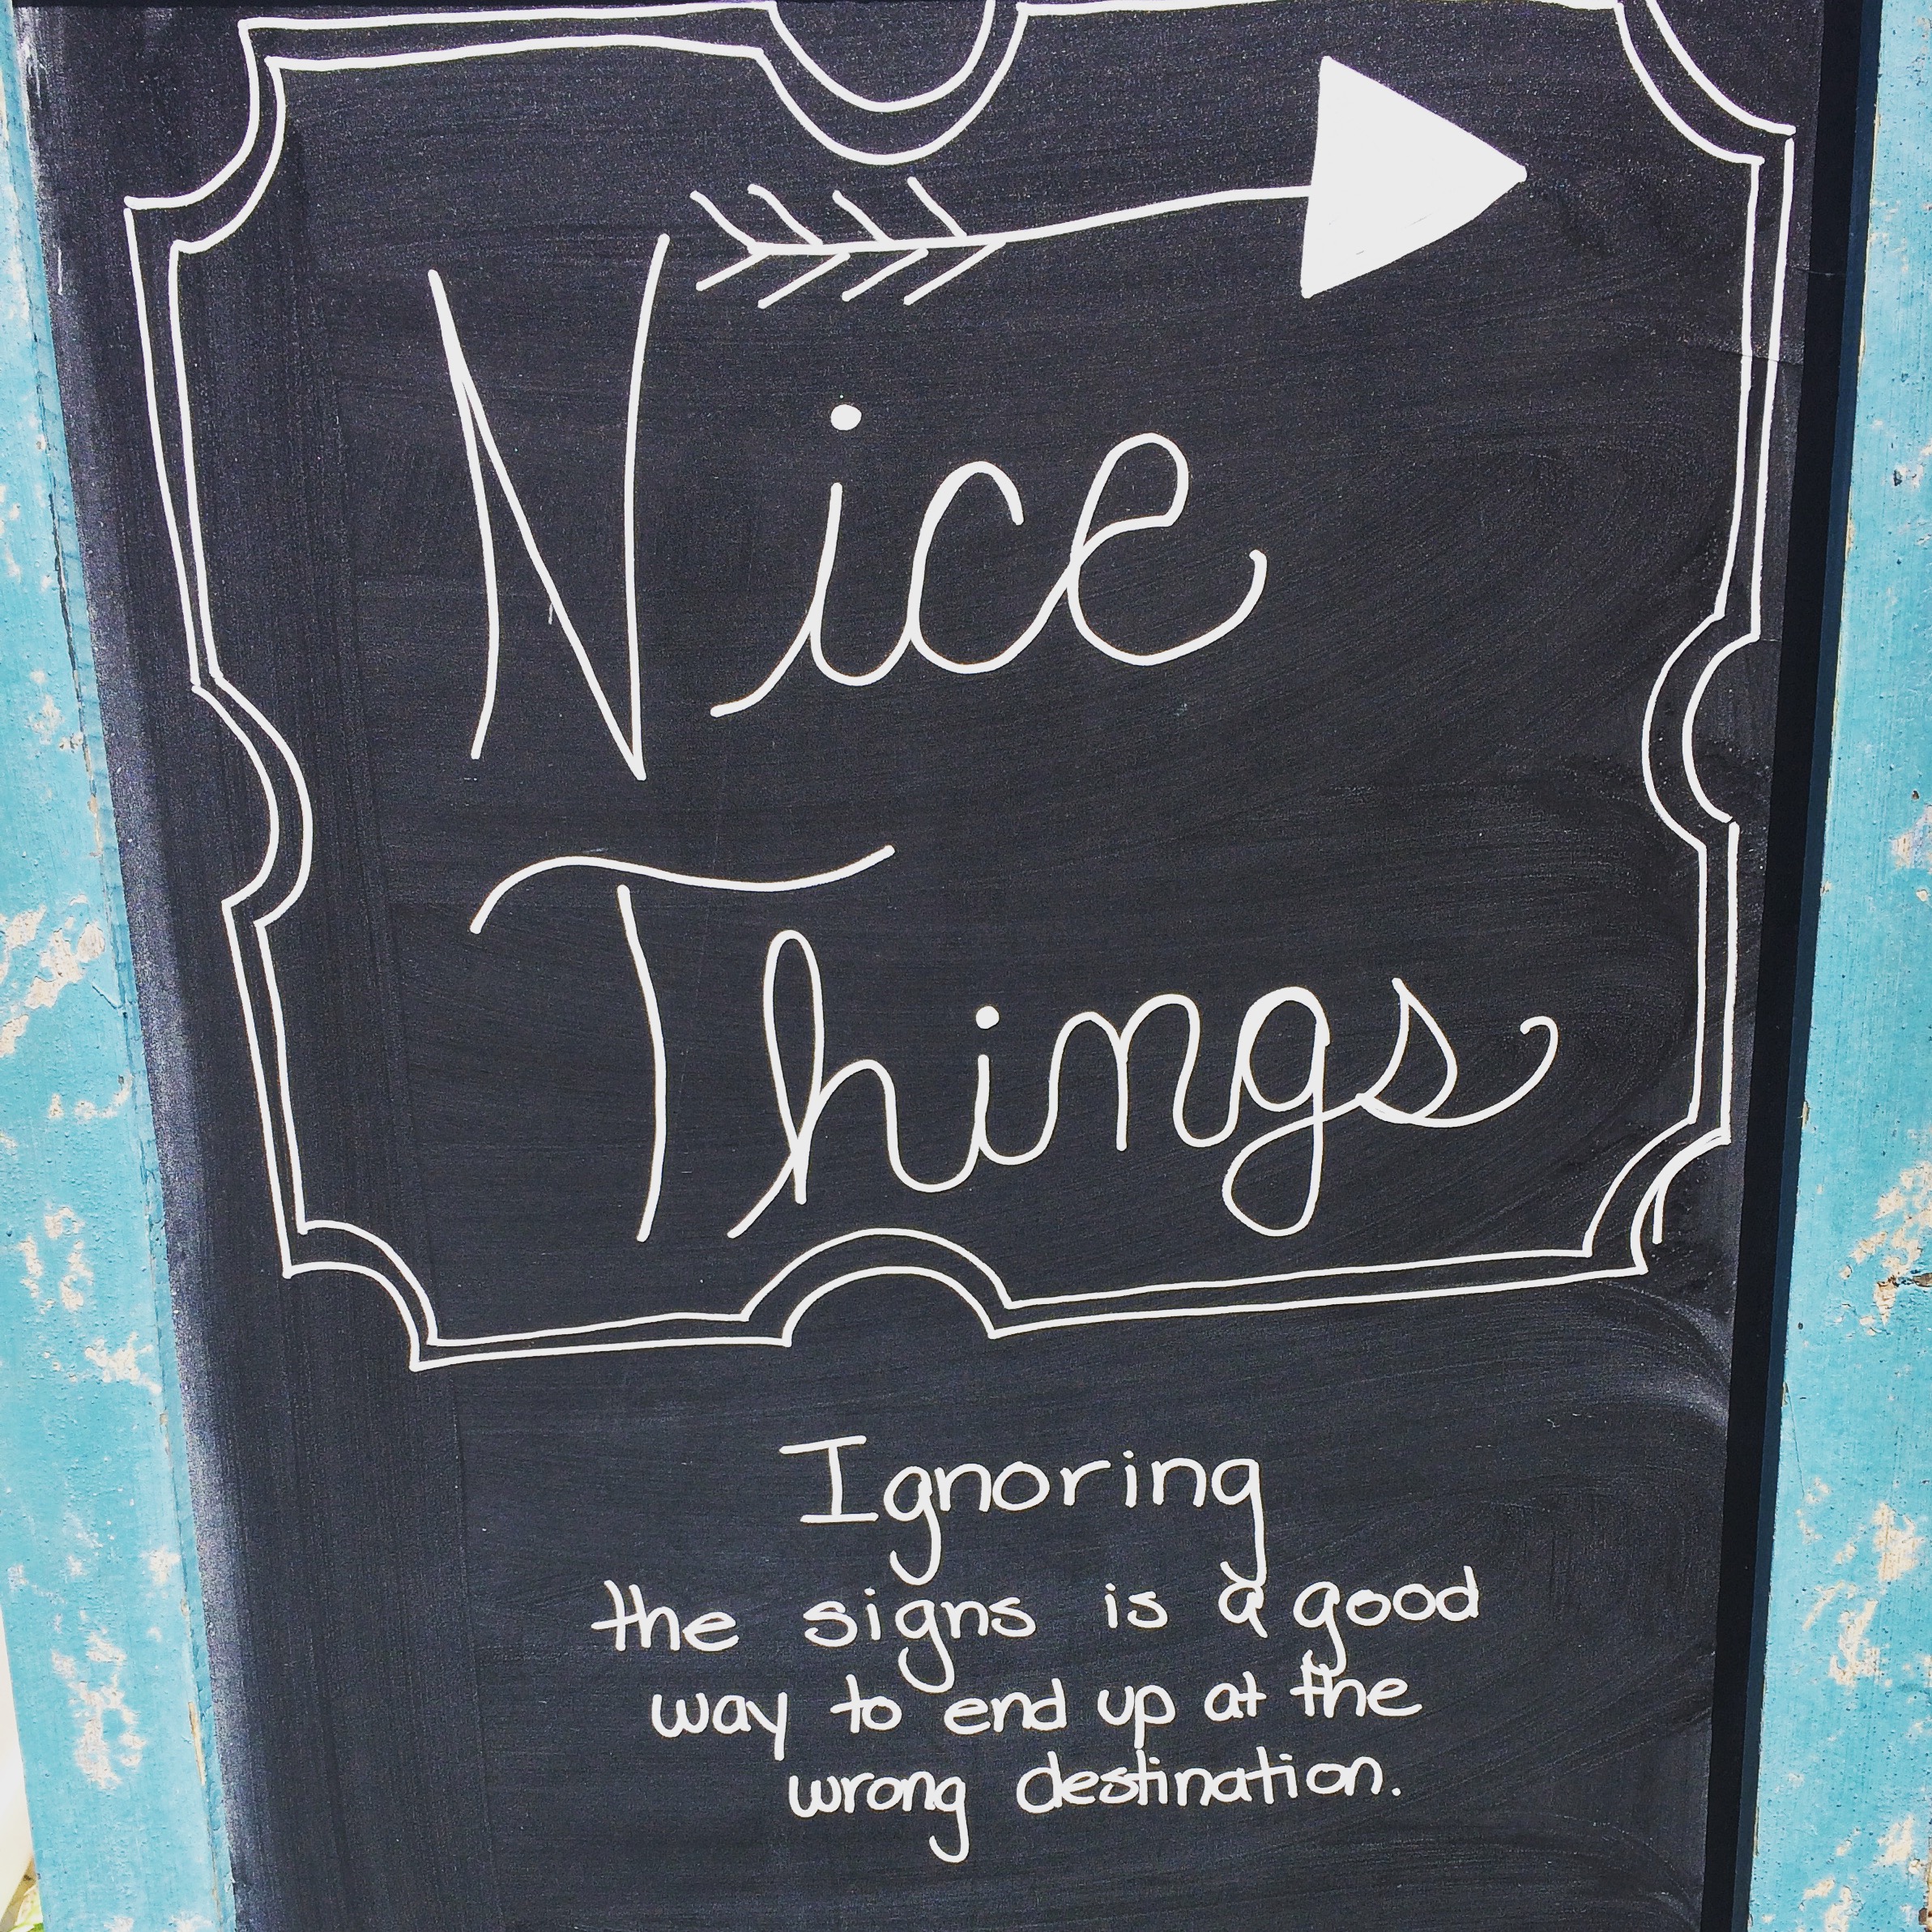 Nice
Things
Ignoring
the signs is a good
way to end up at the
wrong destination.